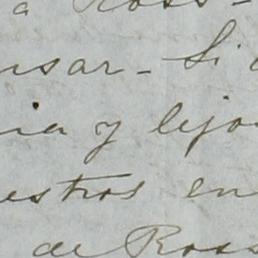 a Ross-
nsar - Si
ia y lejo
estros en
de Ross